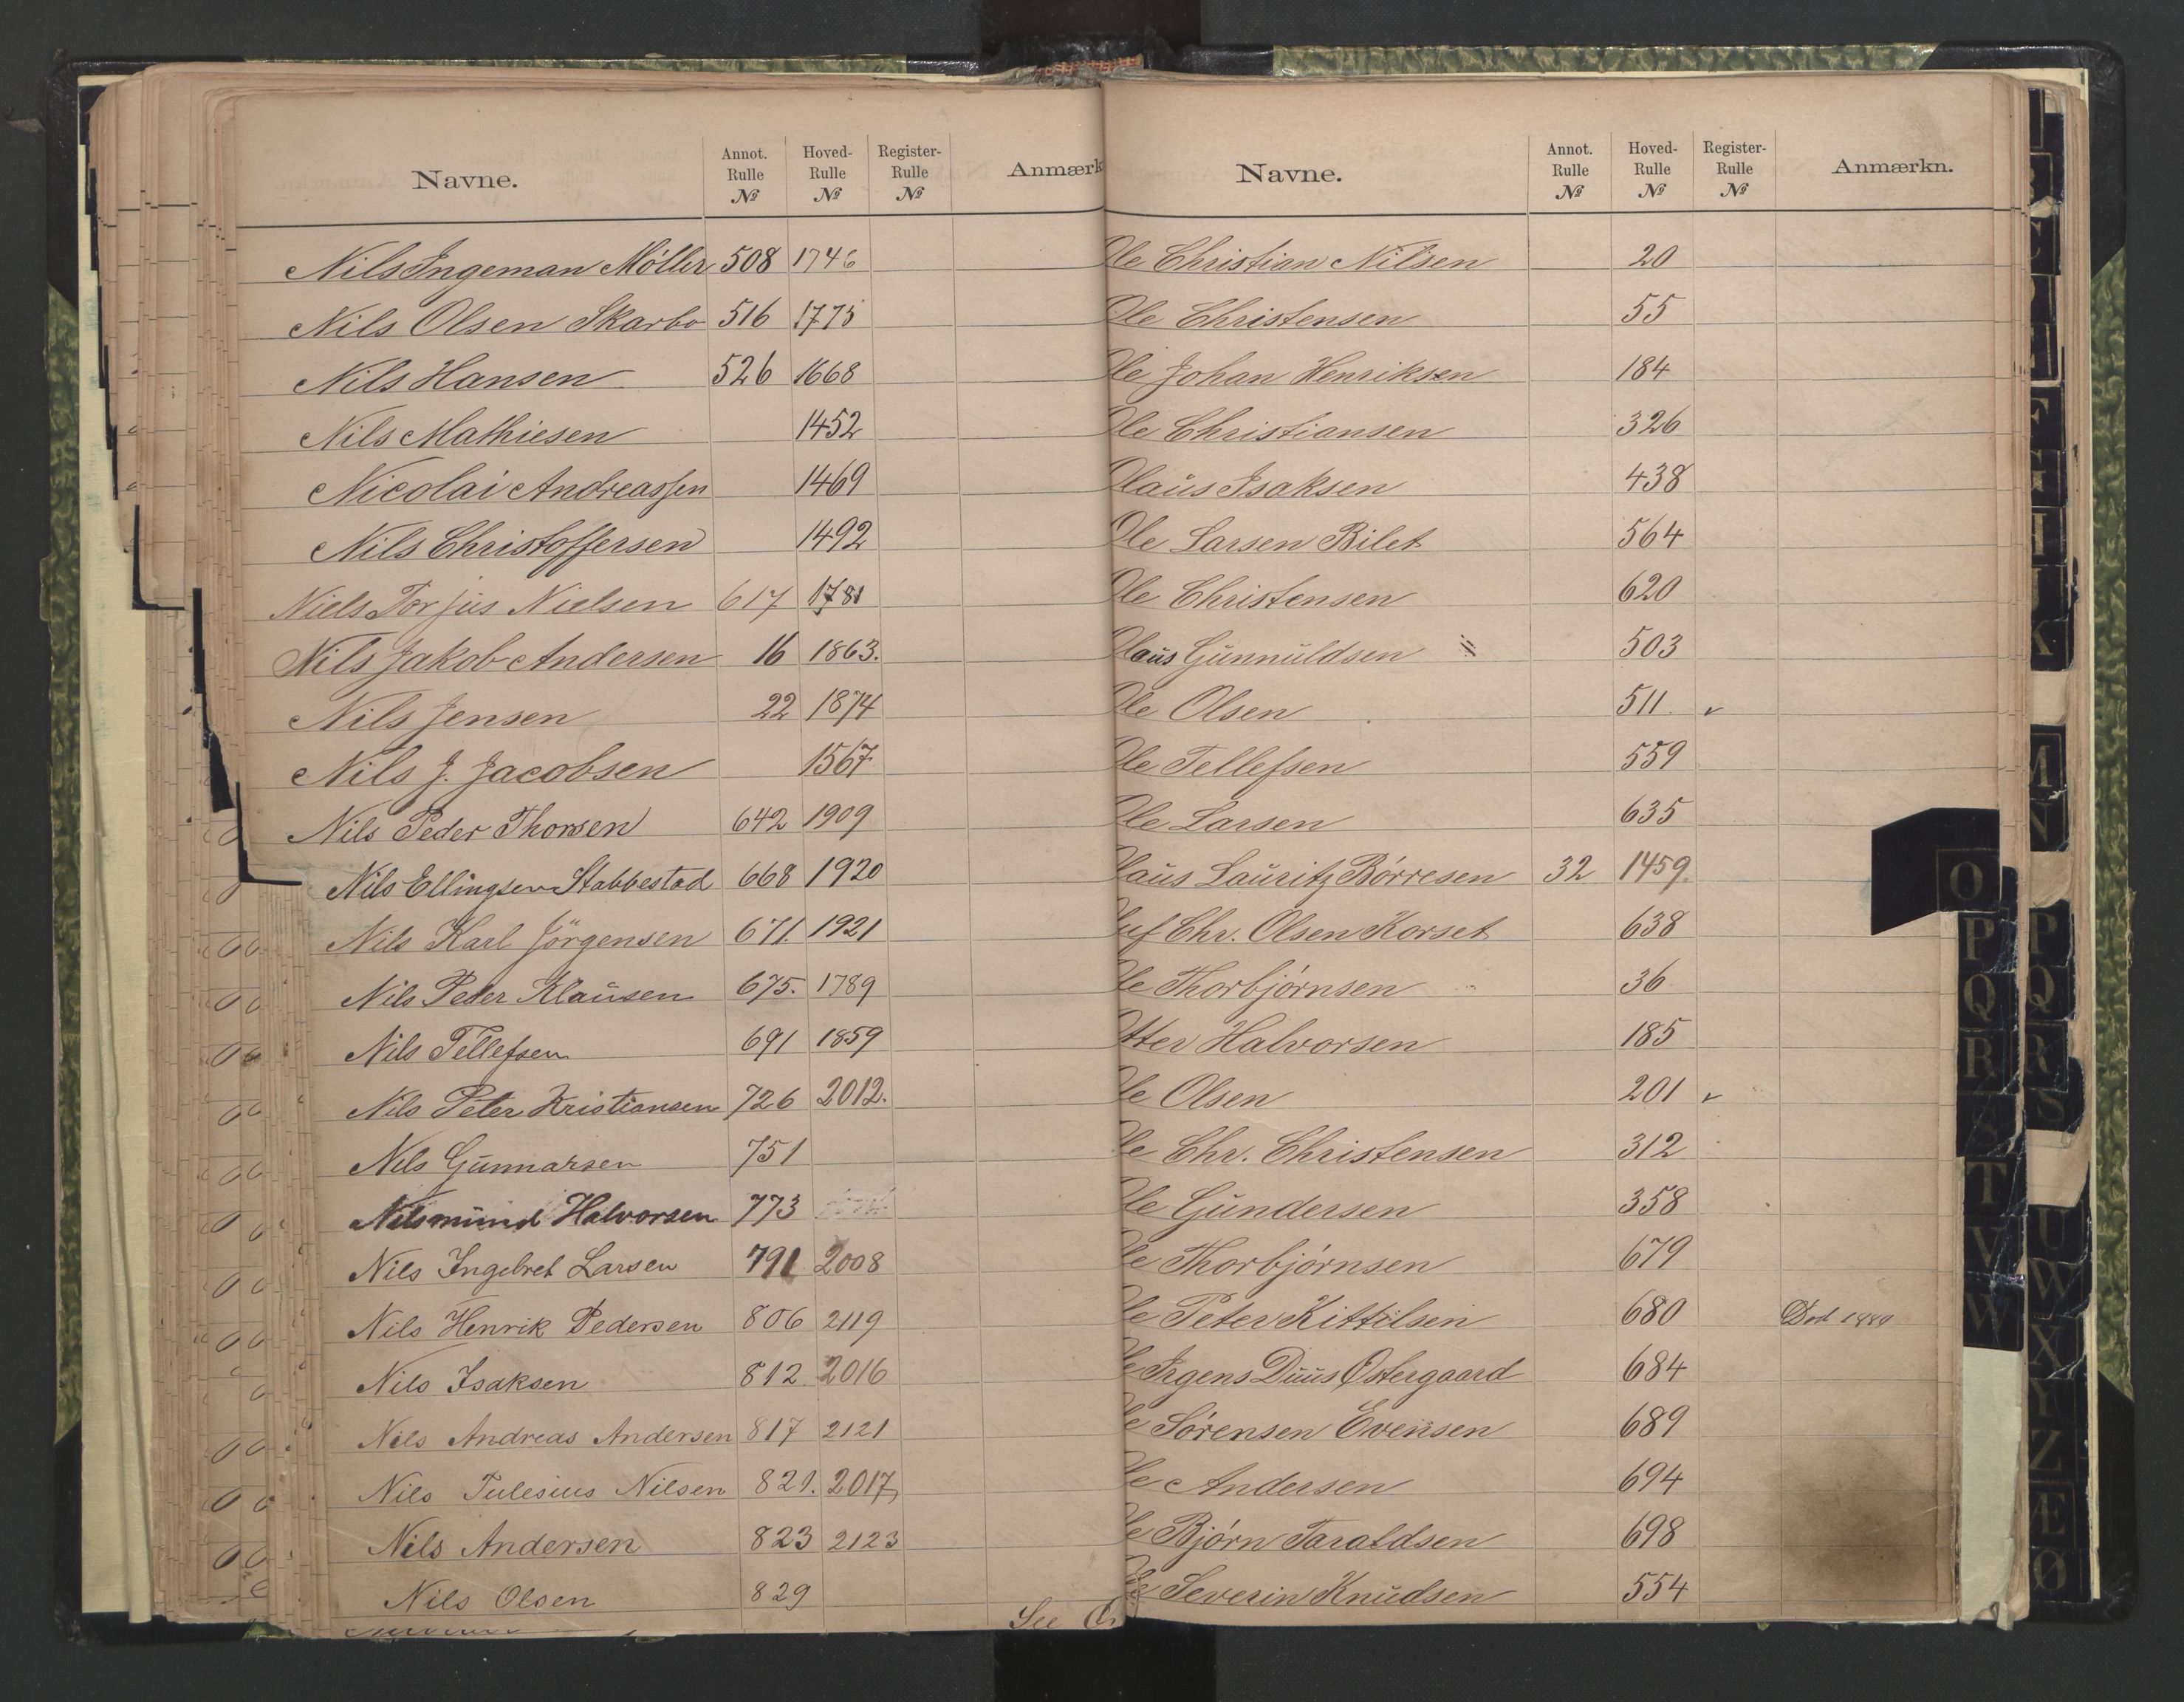 Navne. Annot. Rulle № Hoved-Rulle № Register-Rulle № Anmærk
Nils Ingeman Möller 508 1746
Nils Olsen Skarbo 516 1775
Nils Hansen 526 1668
Nils Mathiesen 1452
Nicolai Andreassen 1469
Nils Christoffersen 1492
Niels Torjus Nielsen 617 1781
Nils Jakob Andersen 16 1863.
Nils Jensen 22 1874
Nils J. Jacobsen 1567
Nils Peder Thorsen 642 1909
Nils Ellingsen Stabbestad 668 1920
Nils Karl Jörgensen 671. 1921
Nils Peder Klausen 675. 1789
Nils Tellefsen 691 1859
Nils Peter Kristiansen 726 2012.
Nils Gunnarsen 751
Nilsmund Halvorsen 773
Nils Ingebret Larsen 791 2008
Nils Henrik Pedersen 806 2119
Nils Isaksen 812 2016
Nils Andreas Andersen 817 2121
Nils Julesius Nilsen 821. 2017
Nils Andersen 823 2123
Nils Olsen 829
See
Navne. Annot. Rulle № Hoved-Rulle № Register-Rulle № Anmærkn.
Ole Christian Nilsen 20
Ole Christensen 55
Ole Johan Henriksen 184
Ole Christiansen 326
Olaus Isaksen 438
Ole Larsen Bilet 564
Ole Christensen 620
Olaus Gunnuldsen 503
Ole Olsen 511 v
Ole Tellefsen 559
Ole Larsen 635
laus Lauritz Börresen 32 1459.
luf Chr. Olsen Korset 638
le Thorbjörnsen 36
tter Halvorsen 185
le Olsen 201 v
le Chr. Christensen 312
le Gundersen 358
le Thorbjörnsen 679
le Peter Kittilsen 680 Død 1889
le Irgens Duus Østergaard 684
le Sörensen Evensen 689
le Andersen 694
le Björn Taraldsen 698
le Severin Knudsen 554
O
P
Q
R
S
T
V
W
M
N
P
Q
R
S
U
W
X
Y
Z
Æ
Ø